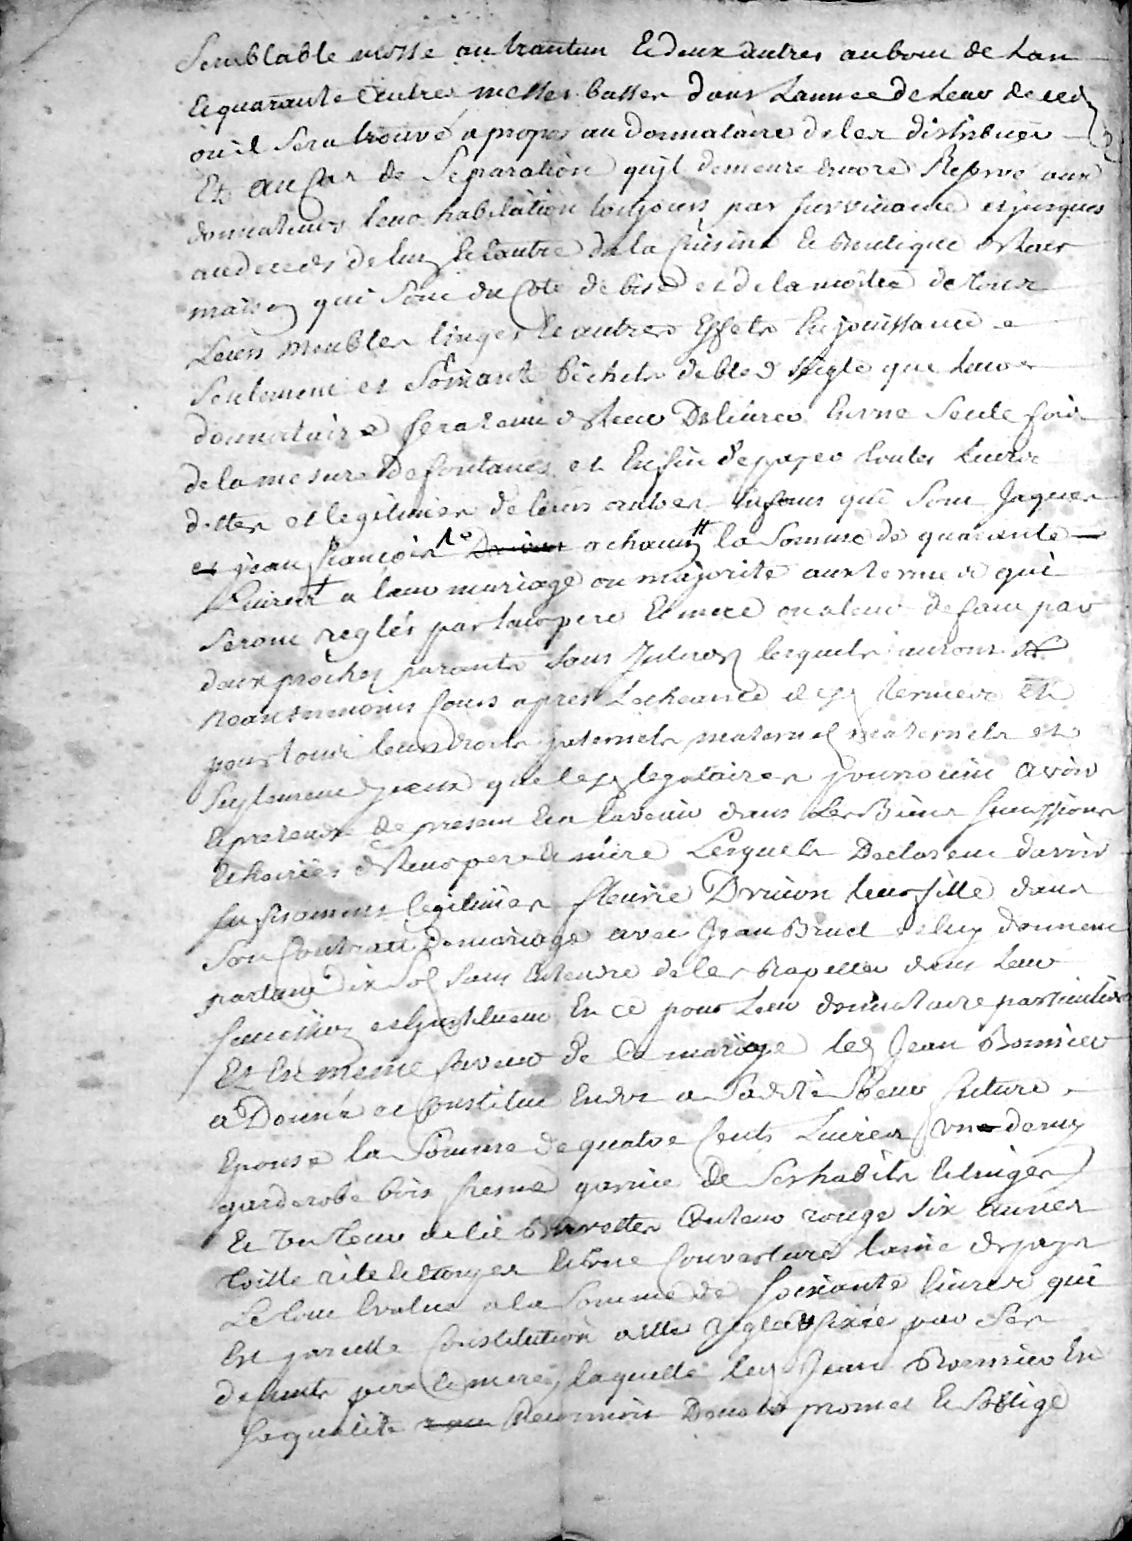 Semblable messe au trantun Et deux autres au bout de Lan
Et quarante autres messes basses dans Lannee de Leur deced
ou il sera trouvé a propos au donnataire de les distribuer
Et au Cas de Separation quil demeure encore Reservé aux
donnateurs leur habitation toujours par survivance et jusques
au deceds de luy Et lautre de la Cuisine Et Boutique
maison qui sont du Coté de bise et de la moitie de tous
Leurs Meubles linges Et autres Effets En jouissance
Seulement et Soixante bichets de bled seigle que Leur
donnataire sera tenu Delivrer En une Seule fois
de la mesure de fontanes et Enfin de payer toutes Leurs
dettes et legitimer de leurs autres Enfans qui sont Jaques
et jean francois a chacun la Somme de quarante
Livres a leur mariage ou majorite aux termes qui
seront reglés par leur pere Et mere ou a leur defaut par
deux proches parants sans Interes lesquels auront
neantmoins cours apres Lecheance desd termes Et
pour tous leurs droits paternels maternel maternels et
Suplement diceux que lesd legataires pourroient avoir
Et pretendre de present Et a lavenir dans Les Biens successions
Et hoiries de leurs pere Et mere Lesquels Declarent davoir
suffisamment legitimer fleurie Drivon leur fille dans
Son Contrat de mariage avec Jean Bruel et luy donnent
partant dix sol sans Entendre de les Rapeller dans Leur
succession et Instituent En ce pour Leur donnataire particuliere
Et En meme faveur de Ce mariage led Jean Bonnier
a Donné et Constitue En dot a Sadite Soeur future
Epouse la Somme de quatre Cents Livres une demy
garderobe bois fresne garnie de Ses habits Et linges
Et un tour de lit Burattes Couleur rouge six aunes
toille Et une Couverture laine de pays
Le tout Evalue a la Somme de soixante livres qui
Est pareille Constitution a Elle reglée fixée par Ses
defunts pere Et mere, laquelle led Jean Bonnier En
sa qualité Donne promet Et Soblige